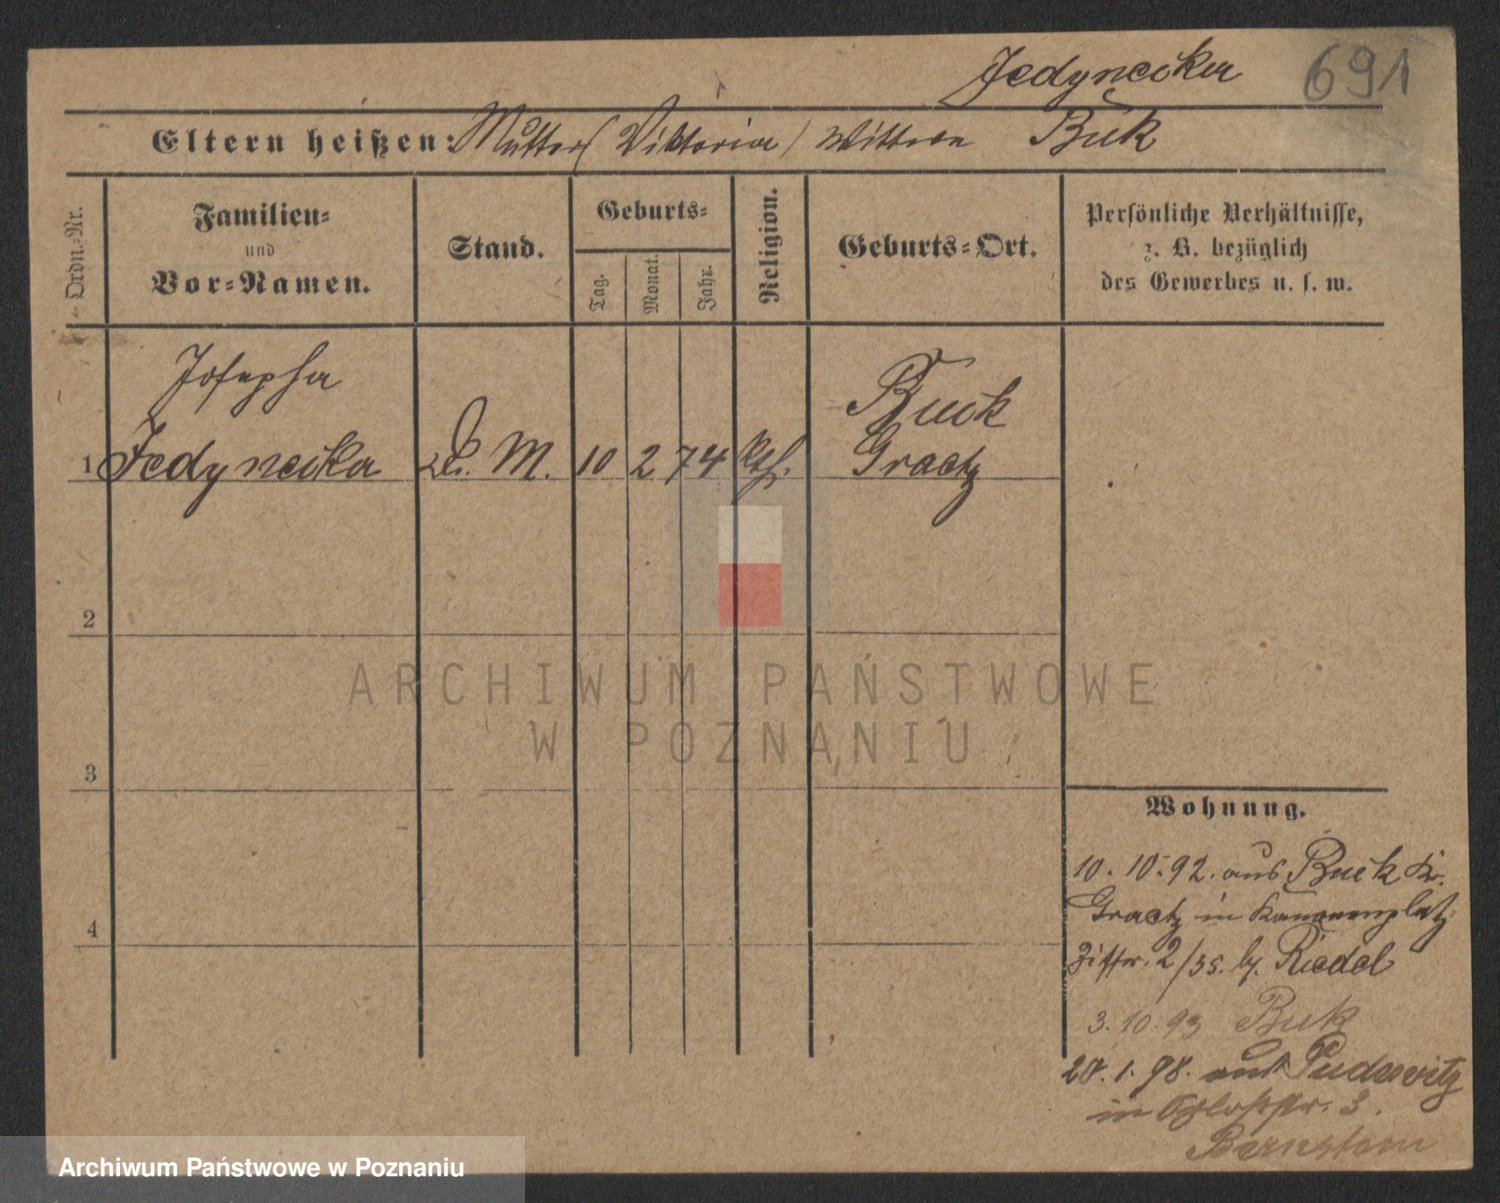 Jedynecka 691
Eltern heißen: Mutter (Viktoria) Wittwe Buk
Ordn.-Nr.
Familien-
und
Vor-Namen.
Stand.
Geburts-
Tag.
Monat.
Jahr.
Religion.
Geburts-Ort.
Persönliche Verhältnisse,
z. B. bezüglich
des Gewerbes u. s. w.
Josepha
Buck
1 Jedynecka D. M. 10 2 74 kth. Graetz
2
ARCHIWUM PAŃSTWOWE
W POZNANIU
3
Wohnung.
10. 10. 92. aus Buck Kr.
Graetz in Kanonenplatz
Ziffer. 2/35. by. Riedel
4
3. 10. 93 Buk
20. 1. 98. aus Pudewitz
in Schloßstr. 3.
Bernstein
Archiwum Państwowe w Poznaniu